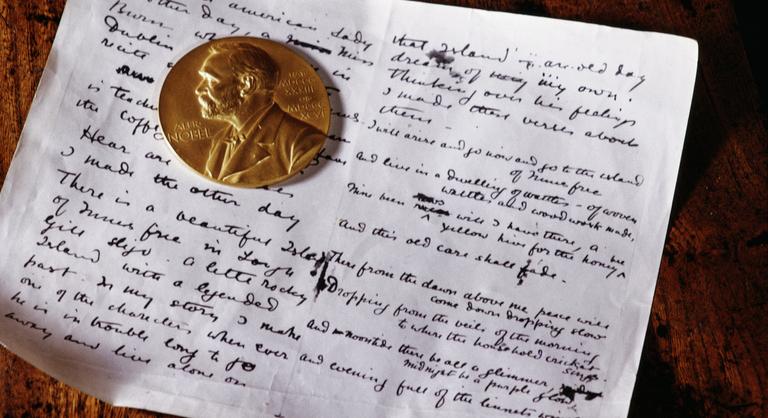 other day american lady
Dublin who, a Miss
recite in
is
the
ALFR. NOBEL
NAT. MDCCC XXXIII OB. MDCCC XCVI
Hear are
I made the other day
There is a beautiful Island
of Innis free in Lough
Gill Sligo. a little rocky
Island with a legended
past. In my story I make
one of the characters when ever
he is in trouble long to go
away and live alone on
that Island - an old day
dream of my own.
Thinking over his feelings
I made these verses about
them -
I will arise and go now and go to the island
of Innis free
and live in a dwelling of wattles - of woven
wattles and wood work made,
Nine bean will I have there, a
yellow hive for the honey
And this old care shall fade.
There from the dawn above me peace will
come down dropping slow
Dropping from the veils of the morning
to where the household cricket
sings.
and noontide there be all a glimmer,
midnight be a purple glow
and evening full of the linnets